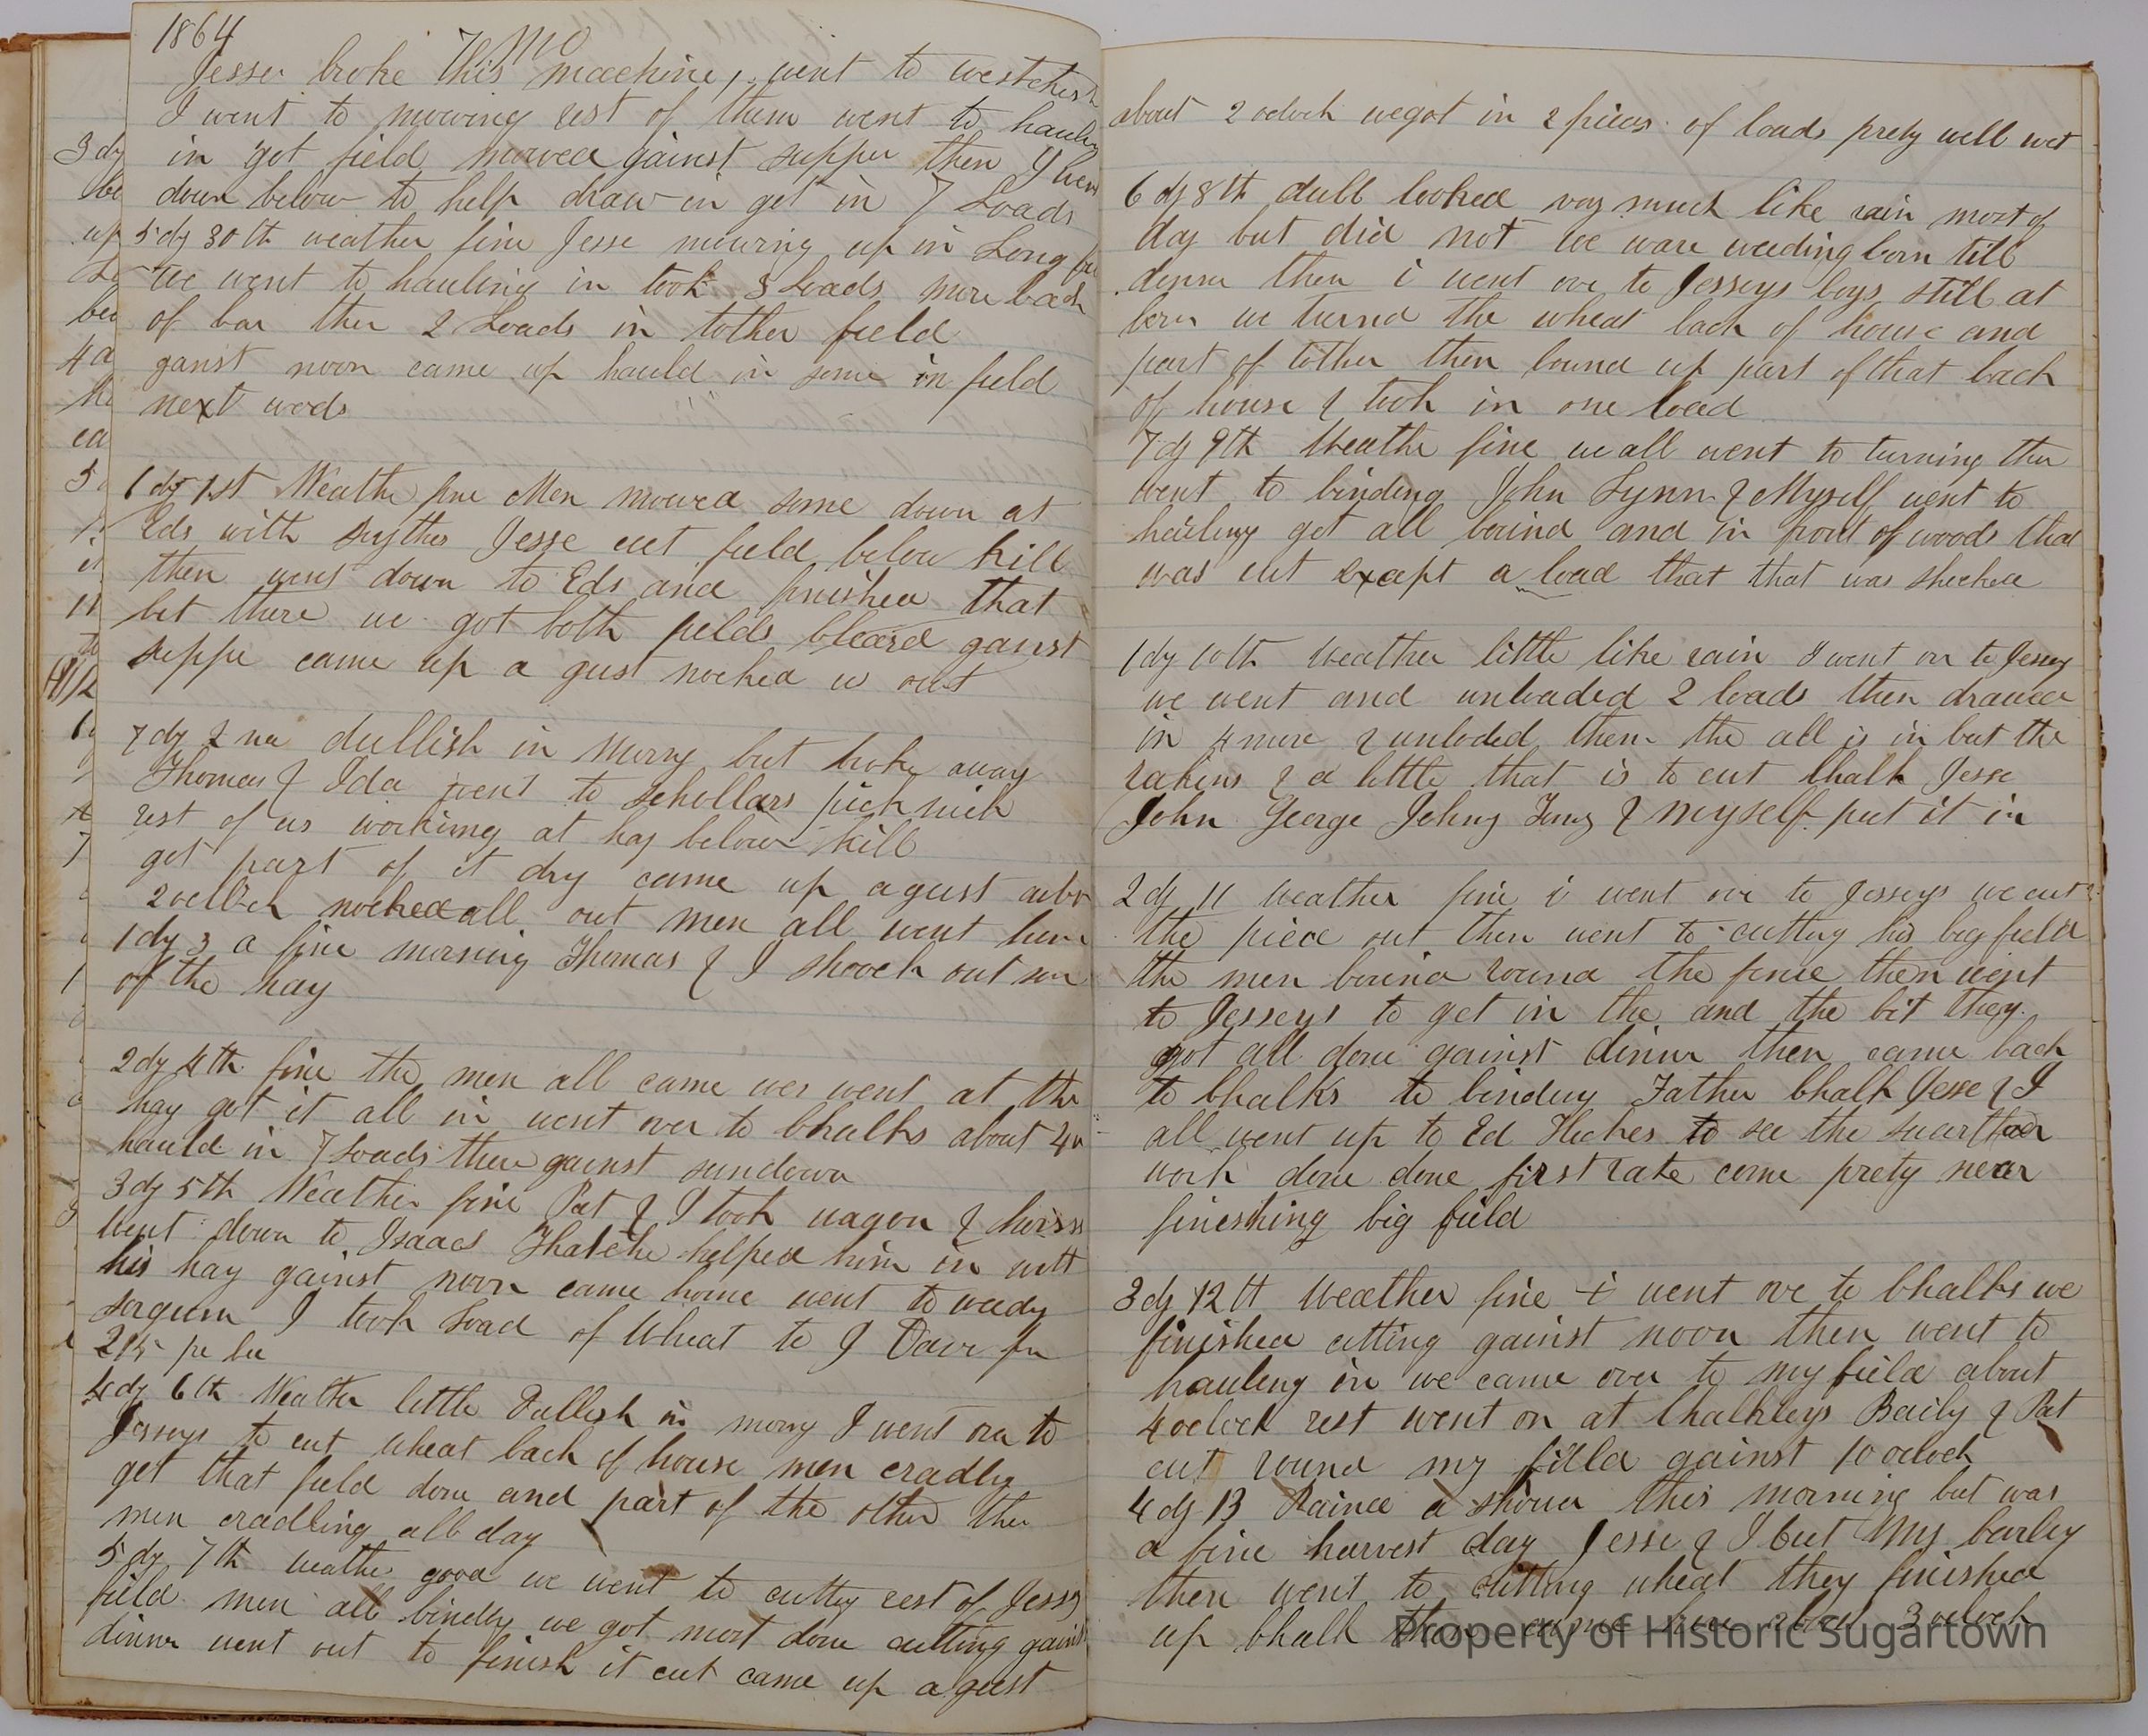 1864
7 mo
Jesse broke this machine, went to westchester
I went to mowing rest of them went to hauling
in got field mowed gainst supper then I
down below to help draw in got in 7 Loads
5 dy 30th weather fine Jesse mowing up in Long
we went to hauling in took 3 Loads more back
of bar then 2 Loads in tother field
ganst noon came up hauld in some in field
next wods
6 dy 1st Weathe fine Men mowed some down at
Eds with sythes Jesse cut field below hill
then went down to Eds and finished that
bet there we got both fields cleard ganst
suppe came up a gust nocked us out
7 dy 2nd dullish in morng but broke away
Thomas & Ida went to schollars pick nick
rest of us working at hay below hill
got part of it dry came up a gust
2 oclock nocked all out men all went
1 dy 3 a fine morning Thomas & I shook out
of the hay
2 dy 4th fine the men all came over went at the
hay got it all in went over to Chalks about 4
hauld in 7 Loads there gainst sundown
3 dy 5th Weather fine Pat & I took wagon & horses
went down to Isaacs Thatche helped him in with
his hay gainst noon came home went to weedg
sorgum I took Load of Wheat to J Davi for
215 pe bu
4 dy 6th Weather little Dullish in morng I went over to
Jesseys to cut wheat back of house men cradlig
got that field done and part of the other the
men cradling all day
5 dy 7th weathe good we went to cuttig rest of Jessys
field men all bindig we got most done cutting gainst
dinner went out to finish it cut came up a gust
about 2 oclock we got in 2 pieces of loads prety well wet
6 dy 8th dull looked very much like rain most of
day but did not we ware weeding corn till
dinner then i went ove to Jesseys boys still at
corn we turnd the wheat back of house and
part of tother then bound up part of that back
of house & took in one load
7 dy 9th Weathe fine we all went to turning then
went to binding John Lynn & Myself went to
hauling got all bound and in pout of woods that
was cut exapt a load that that was shocked
1 dy 10th Weather little like rain I went over to Jessey
we went and unloaded 2 loads then drawed
in 4 more & unloded them the all is in but the
rakins & a little that is to cut Chalk Jesse
John George Johny & myself put it in
2 dy 11 Weather fine i went ove to Jesseys we cut
the piece out then went to cutting his big field
the men bound round the fence then went
to Jesseys to get in the and the bit they
got all done gainst dinner then came back
to Chalks to bindng Father Chalk Jesse & I
all went up to Ed Hickes to see the
work done done first rate come prety near
fineshing big field
3 dy 12th Weather fine i went ove to Chalks we
finished cutting gainst noon then went to
hauling in we came over to my field about
4 oclock rest went on at Chalkleys Baily & Pat
cut round my filld gainst 10 oclock
4 dy 13 Rained a shower this morning but was
a fine harvest day Jesse & I Cut My barley
then went to cutting wheat they finished
up Chalk then came here about 3 oclock
Property of Historic Sugartown
3 dy
be
up
be
4 d
ca
5